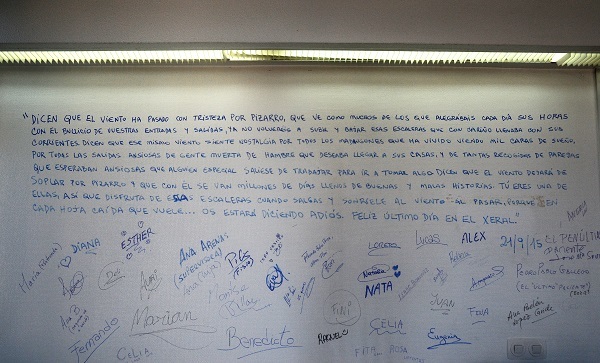 "DICEN QUE EL VIENTO HA PASADO CON TRISTEZA POR PIZARRO, QUE VE COMO MUCHOS DE LOS QUE ALEGRÁBAIS CADA DÍA SUS HORAS
CON EL BULLICIO DE VUESTRAS ENTRADAS Y SALIDAS, YA NO VOLVERÉIS A SUBIR Y BAJAR ESAS ESCALERAS QUE CON CARIÑO LLENABA CON SUS
CORRIENTES. DICEN QUE ESE MISMO VIENTO SIENTE NOSTALGIA POR TODOS LOS MADRUGONES QUE HA VIVIDO VIENDO MIL CARAS DE SUEÑO,
POR TODAS LAS SALIDAS ANSIOSAS DE GENTE MUERTA DE HAMBRE QUE DESEABA LLEGAR A SUS CASAS, Y DE TANTAS RECOGIDAS DE PAREJAS
QUE ESPERABAN ANSIOSAS QUE ALGUIEN ESPECIAL SALIESE DE TRABAJAR PARA IR A TOMAR ALGO. DICEN QUE EL VIENTO DEJARÁ DE
SOPLAR POR PIZARRO Y QUE CON ÉL SE VAN MILLONES DE DÍAS LLENOS DE BUENAS Y MALAS HISTORIAS. TÚ ERES UNA DE
ELLAS, ASÍ QUE DISFRUTA DE ESAS ESCALERAS CUANDO SALGAS Y SONRÍELE AL VIENTO AL PASAR, PORQUE EN
CADA HOJA CAÍDA QUE VUELE... OS ESTARÁ DICIENDO ADIÓS. FELIZ ÚLTIMO DÍA EN EL XERAL."
DIANA
ESTHER
ANA ARENAS
(SUPERVISORA
Lucas
ALEX
21/9/15 EL PENÚLTIMO
PACIENTE
Natalia
NATA
Montse
Marian
Fernando
CELIA
Benedicto
RAQUEL
FINI
CELIA
JUAN
Eugenia
FINA
ROSA